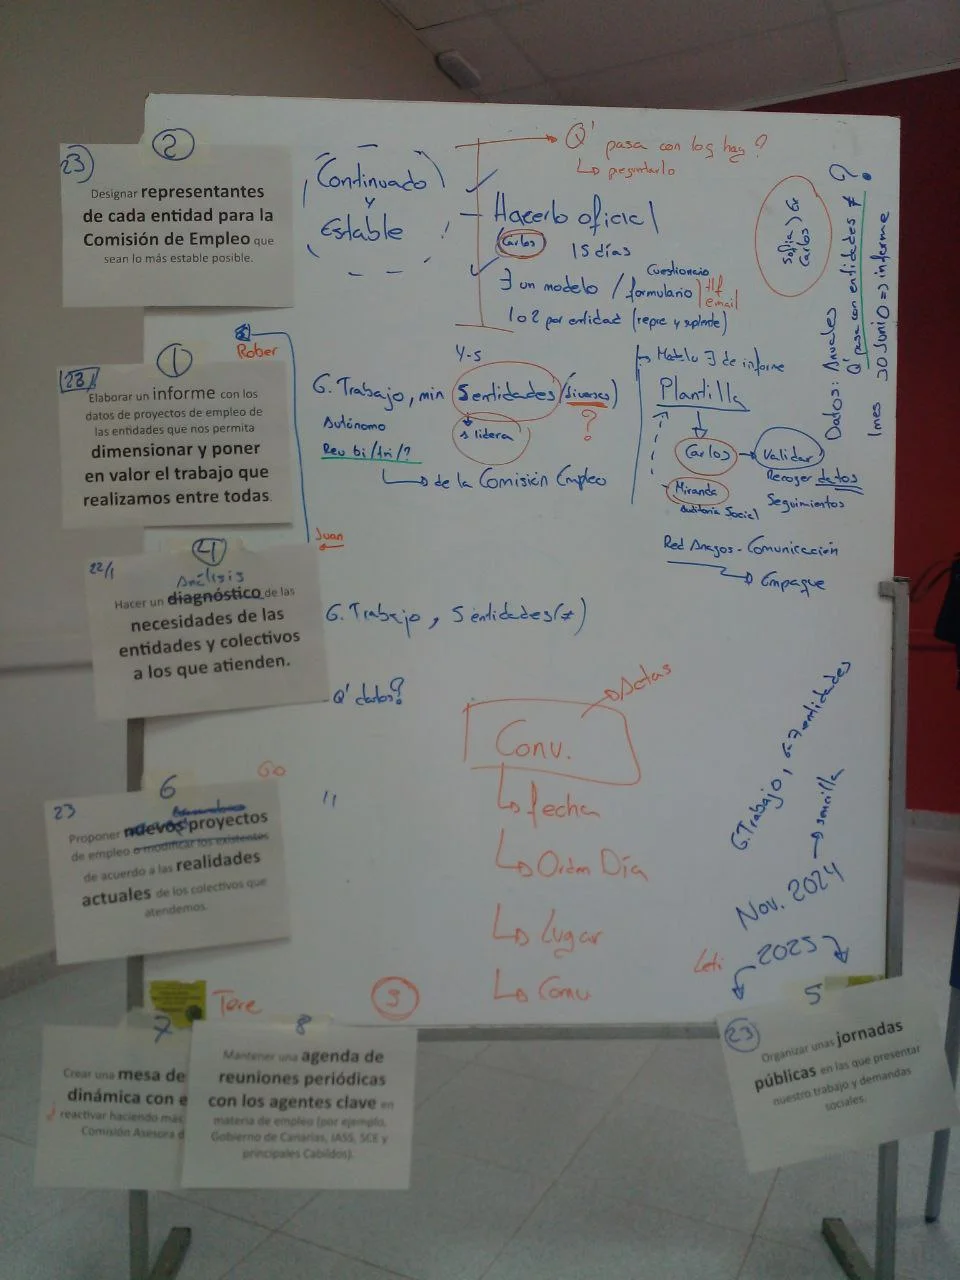 2
23
Designar representantes
de cada entidad para la
Comisión de Empleo que
sean lo más estable posible.
Continuado
y
Estable
Q' pasa con los hay?
↳ preguntarlo
- Hacerlo oficial
Carlos
15 días
∃ un modelo / formulario
Cuestionario
tlf
email
1 o 2 por entidad (repre y suplente)
Sofia
Carlos
Datos: Anuales
Q' pasa con entidades ≠ ?
1 mes 30 Junio => informe
Rober
1
23
Elaborar un informe con los
datos de proyectos de empleo de
las entidades que nos permita
dimensionar y poner
en valor el trabajo que
realizamos entre todas.
4-5
G. Trabajo, min 5 entidades (diversas)
?
Autónomo
1 lidera
Reu bi/tri/?
de la Comisión Empleo
Modelo ∃ de informe
Plantilla
Carlos → Validar
Recoger datos
Seguimientos
Miranda
Auditoria Social
Red Anagos - Comunicación
Empaque
Juan
4
22/1
Análisis
Hacer un diagnóstico de las
necesidades de las
entidades y colectivos
a los que atienden.
G. Trabajo, 5 entidades (≠)
Q' datos?
Actas
Conv.
↳ fecha
↳ Orden Día
↳ Lugar
↳ Comu
Go
6
23
"
Proponer nuevos proyectos
de empleo o modificar los existentes
de acuerdo a las realidades
actuales de los colectivos que
atendemos.
G. Trabajo, 6-7 entidades
Nov. 2024 → sencilla
2025
Leti
Tere
3
7
Crear una mesa de
dinámica con e
reactivar haciendo más
Comisión Asesora d
8
Mantener una agenda de
reuniones periódicas
con los agentes clave en
materia de empleo (por ejemplo,
Gobierno de Canarias, IASS, SCE y
principales Cabildos).
5
23
Organizar unas jornadas
públicas en las que presentar
nuestro trabajo y demandas
sociales.